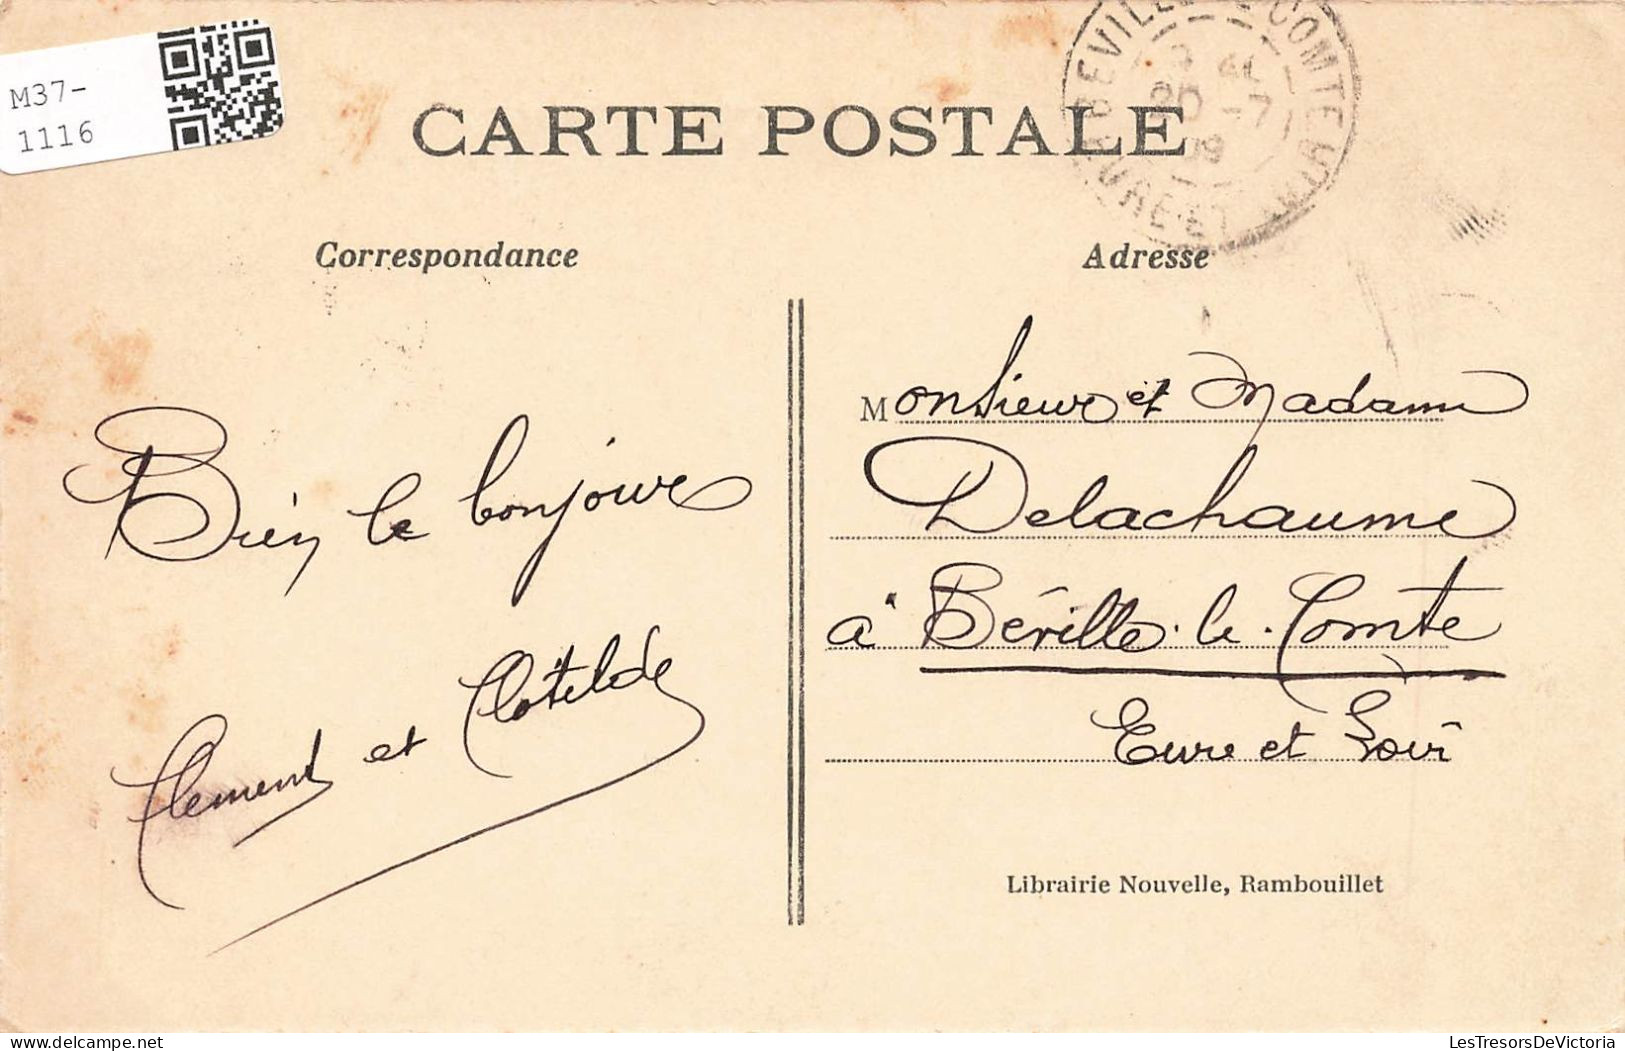 M37-
1116
CARTE POSTALE
Correspondance
Adresse
Bien le bonjour
Clement et Clotilde
Monsieur et Madame
Delachaume
à Béville-le-Comte
Eure et Loir
Librairie Nouvelle, Rambouillet
COMTE
20 -7
09
delcampe.net
LesTresorsDeVictoria